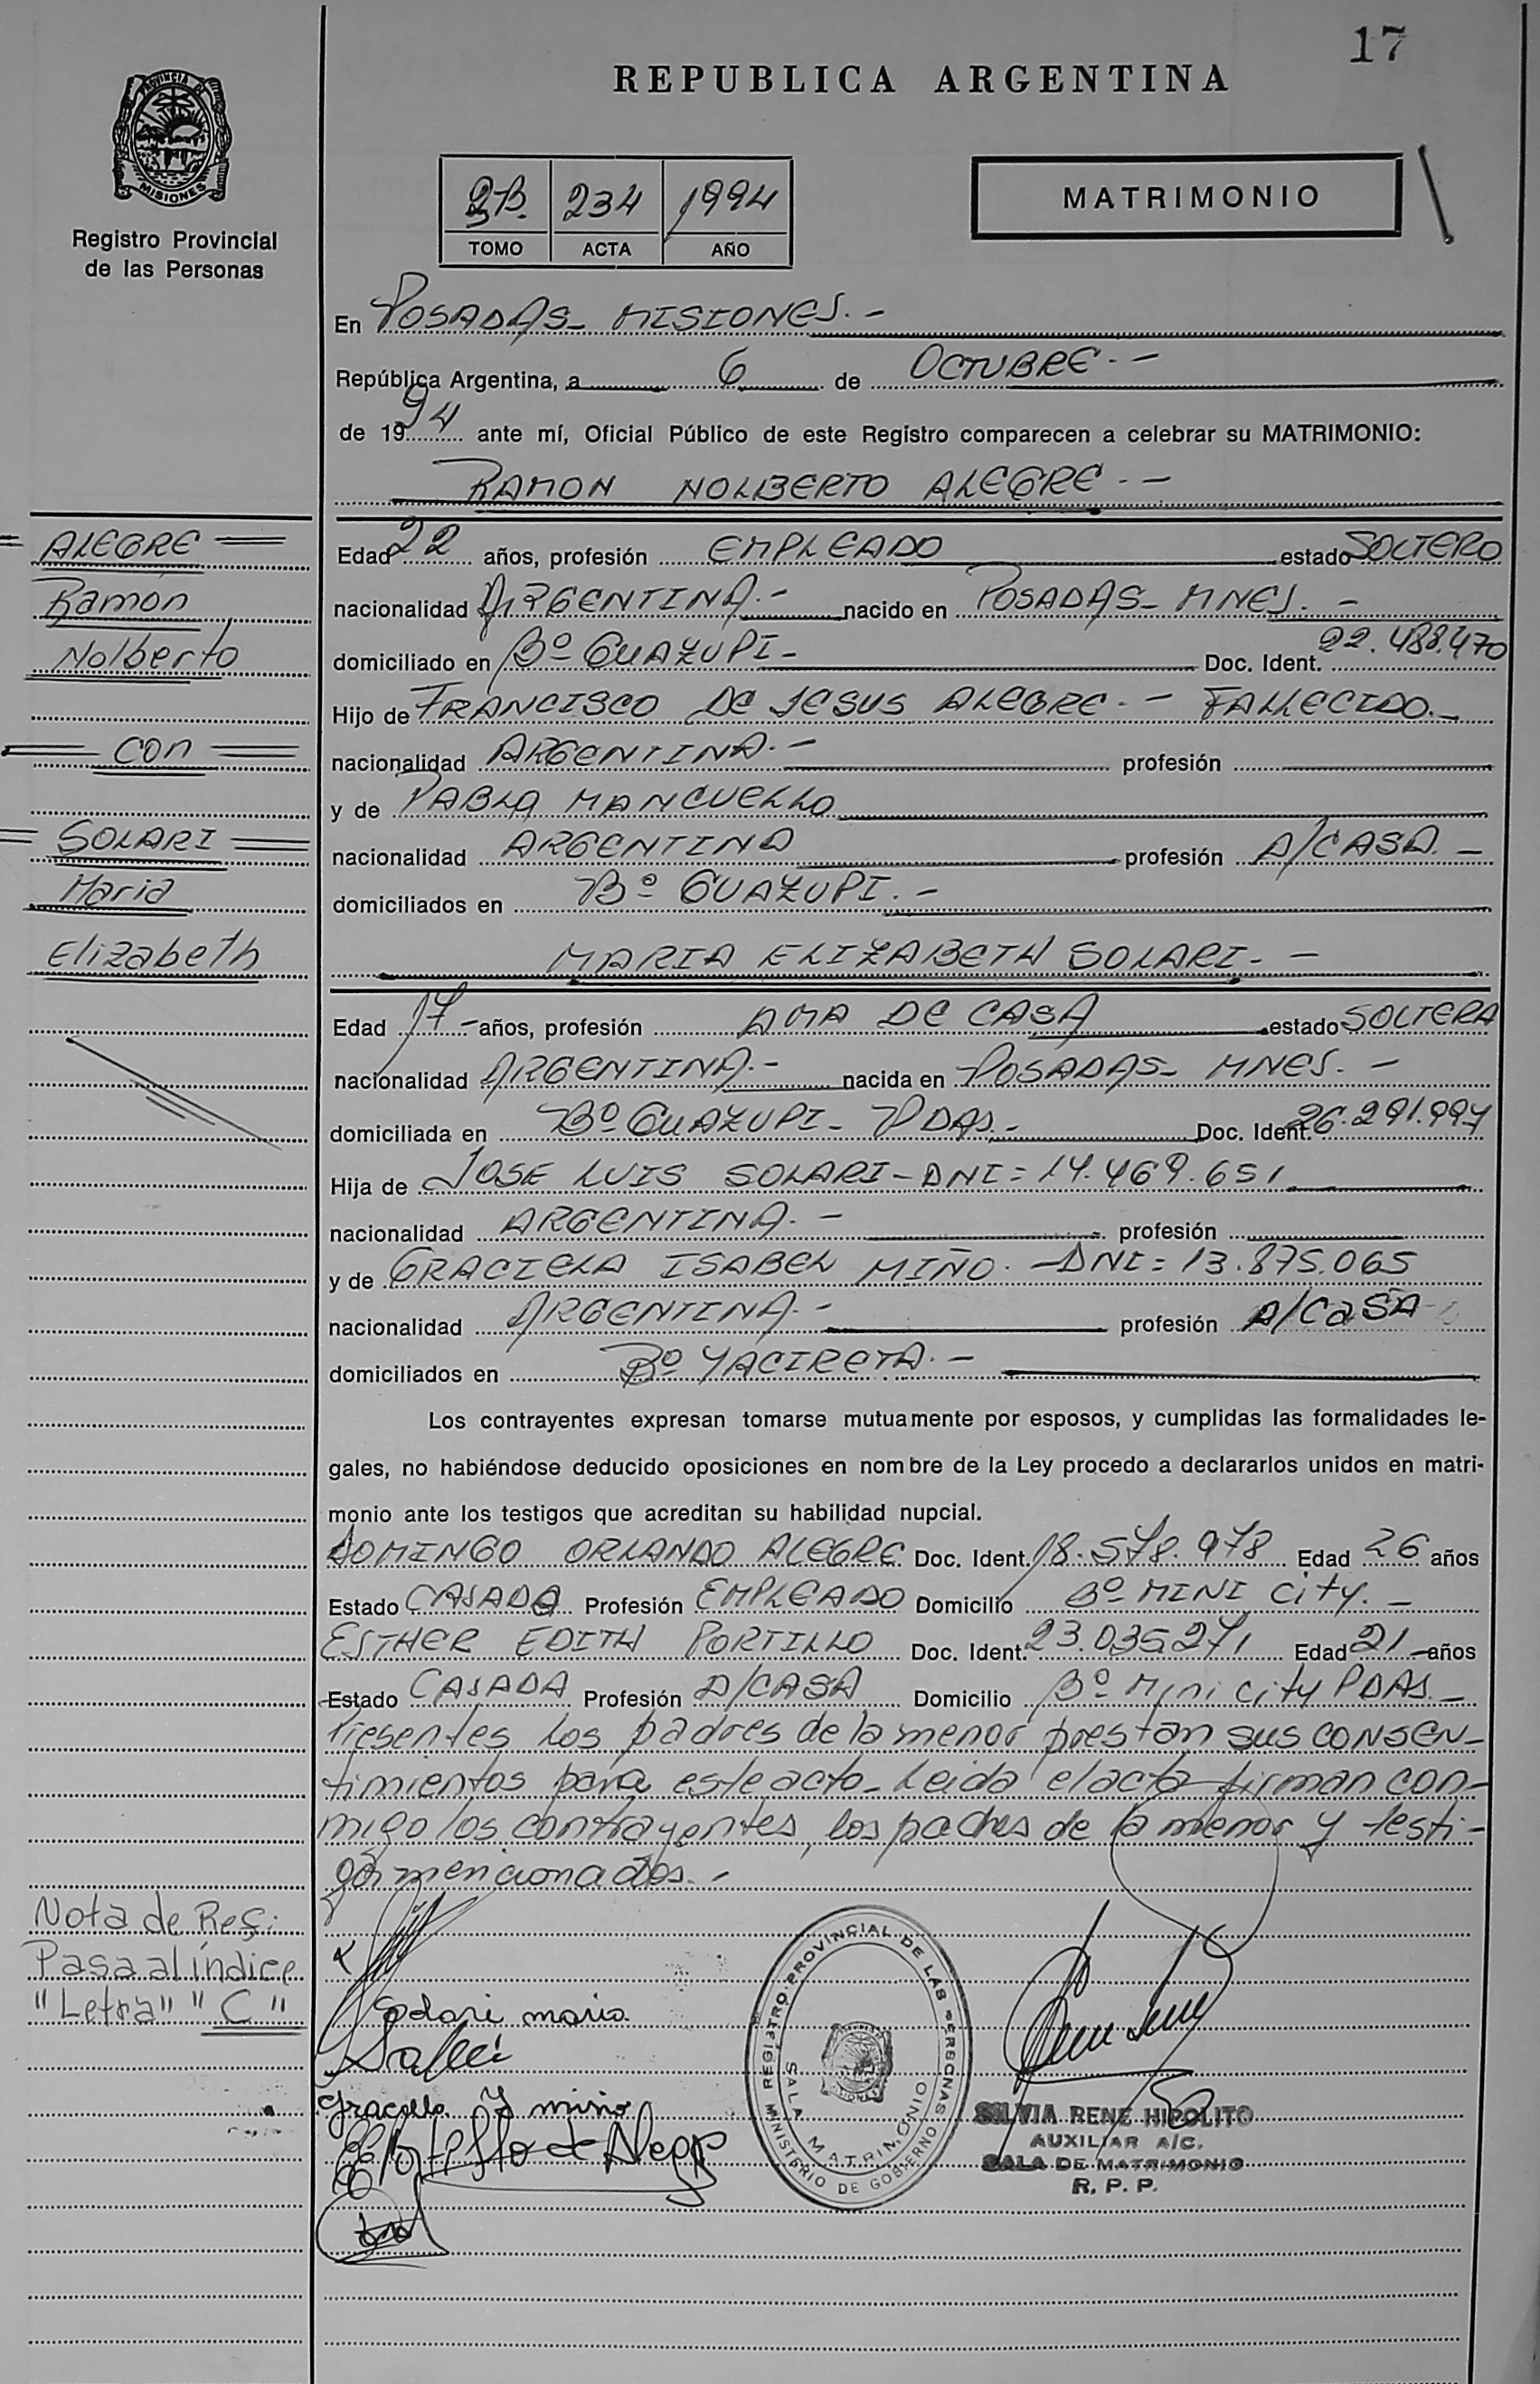 17
REPUBLICA ARGENTINA
PROVINCIA DE
MISIONES
Registro Provincial
de las Personas
234 1994
TOMO ACTA AÑO
MATRIMONIO
En POSADAS- MISIONES.-
República Argentina, a 6 de OCTUBRE.-
de 1994 ante mí, Oficial Público de este Registro comparecen a celebrar su MATRIMONIO:
RAMON NOLBERTO ALEGRE.-
ALEGRE
Ramon
Nolberto
con
SOLARI
Maria
Elizabeth
Edad 22 años, profesión EMPLEADO estado SOLTERO
nacionalidad ARGENTINA.- nacido en POSADAS- MNES.-
domiciliado en Bº GUAZUPI- Doc. Ident. 22.488.470
Hijo de FRANCISCO DE JESUS ALEGRE.- FALLECIDO.-
nacionalidad ARGENTINA.- profesión
y de PABLA MANCUELLO
nacionalidad ARGENTINA profesión A/CASA.-
domiciliados en Bº GUAZUPI.-
MARIA ELIZABETH SOLARI.-
Edad 17- años, profesión AMA DE CASA estado SOLTERA
nacionalidad ARGENTINA.- nacida en POSADAS- MNES.-
domiciliada en Bº GUAZUPI- PDAS.- Doc. Ident. 26.291.997
Hija de JOSE LUIS SOLARI-DNI=14.469.651
nacionalidad ARGENTINA.- profesión
y de GRACIELA ISABEL MIÑO.-DNI=13.875.065
nacionalidad ARGENTINA.- profesión A/CASA
domiciliados en Bº YACIRETA.-
Los contrayentes expresan tomarse mutuamente por esposos, y cumplidas las formalidades le-
gales, no habiéndose deducido oposiciones en nombre de la Ley procedo a declararlos unidos en matri-
monio ante los testigos que acreditan su habilidad nupcial.
DOMINGO ORLANDO ALEGRE Doc. Ident. 18.578.978 Edad 26 años
Estado CASADO Profesión EMPLEADO Domicilio Bº MINI City.-
ESTHER EDITH PORTILLO Doc. Ident. 23.035.271 Edad 21 años
Estado CASADA Profesión A/CASA Domicilio Bº Mini city PDAS.-
Presentes los padres de la menor prestan sus consen-
timientos para este acto- Leida el acta firman con-
migo los contrayentes, los padres de la menor y testi-
gos mencionados.-
Nota de Ref:
Pasa al índice
"Letra" "C"
Solari maria
Graciela I miño
REGISTRO PROVINCIAL DE LAS PERSONAS
MINISTERIO DE GOBIERNO
SALA MATRIMONIO
MISIONES
SILVIA RENE HIPOLITO
AUXILIAR A/C.
SALA DE MATRIMONIO
R. P. P.